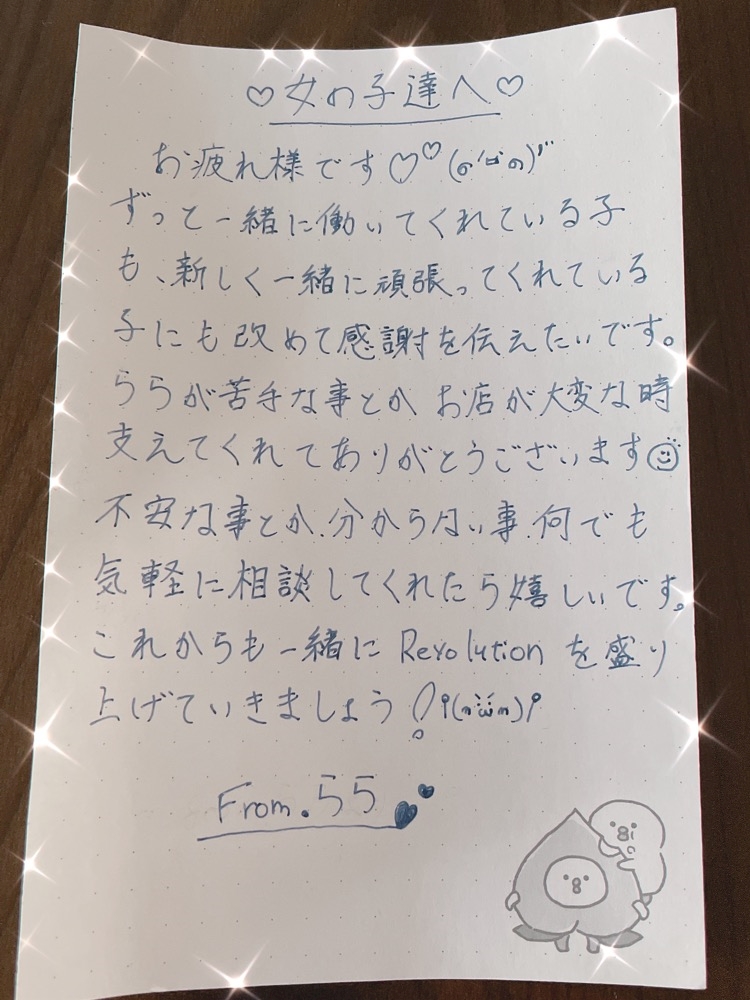 ♡女の子達へ♡
お疲れ様です♡♡(๑'ω'๑)"
ずっと一緒に働いてくれている子
も、新しく一緒に頑張ってくれている
子にも改めて感謝を伝えたいです。
ららが苦手な事とか お店が大変な時
支えてくれてありがとうございます☺
不安な事とか、分からない事、何でも
気軽に相談してくれたら嬉しいです。
これからも一緒に Revolution を盛り
上げていきましょう!
From.らら